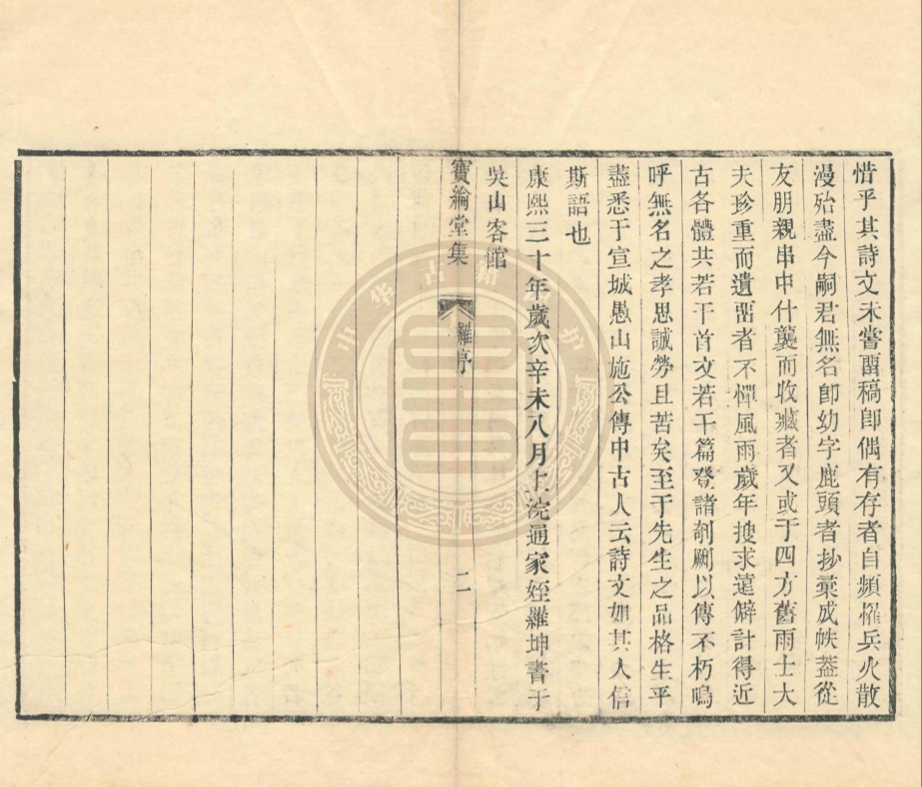 惜乎其詩文未嘗畱稿卽偶有存者自頻罹兵火散
漫殆盡今嗣君無名卽幼字鹿頭者抄彙成帙葢從
友朋親串中什襲而收藏者又或于四方舊雨士大
夫珍重而遺畱者不憚風雨歲年搜求遠僻計得近
古各體共若干首文若干篇登諸剞劂以傳不朽嗚
呼無名之孝思誠勞且苦矣至于先生之品格生平
盡悉于宣城愚山施公傳中古人云詩文如其人信
斯語也
康熙三十年歲次辛未八月上浣通家姪羅坤書于
吳山客館
寶綸堂集
羅序
二